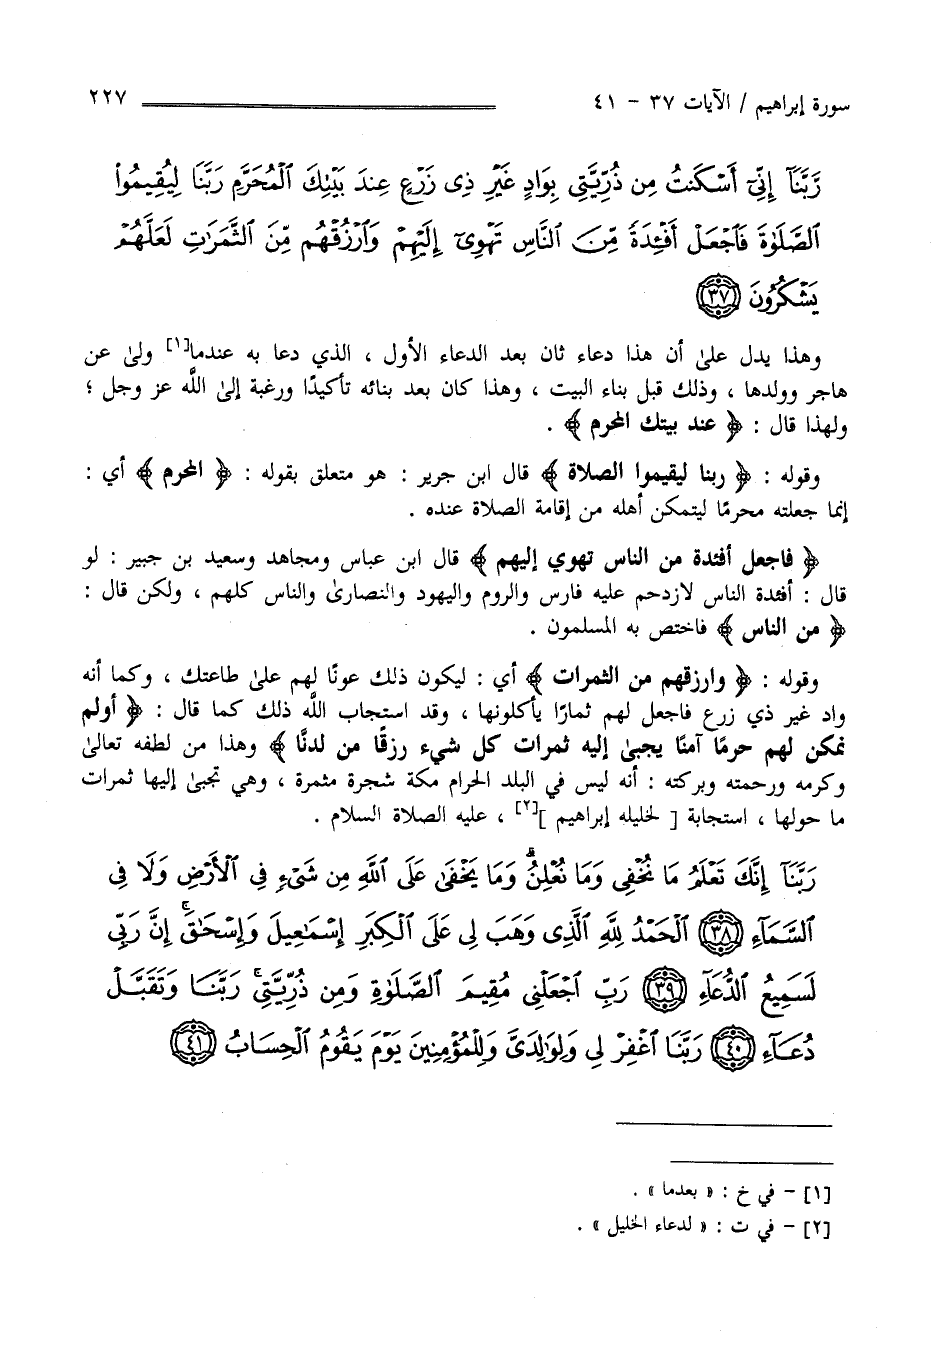 سورة إبراهيم / الآيات ٣٧ - ٤١
٢٢٧
رَّبَّنَآ إِنِّىٓ أَسْكَنتُ مِن ذُرِّيَّتِى بِوَادٍ غَيْرِ ذِى زَرْعٍ عِندَ بَيْتِكَ ٱلْمُحَرَّمِ رَبَّنَا لِيُقِيمُوا۟
ٱلصَّلَوٰةَ فَٱجْعَلْ أَفْـِٔدَةً مِّنَ ٱلنَّاسِ تَهْوِىٓ إِلَيْهِمْ وَٱرْزُقْهُم مِّنَ ٱلثَّمَرَٰتِ لَعَلَّهُمْ
يَشْكُرُونَ ٣٧
وهذا يدل علىٰ أن هذا دعاء ثان بعد الدعاء الأول ، الذي دعا به عندما[١] ولىٰ عن
هاجر وولدها ، وذلك قبل بناء البيت ، وهذا كان بعد بنائه تأكيدًا ورغبة إلىٰ اللَّه عز وجل ؛
ولهذا قال : ﴿ عند بيتك المحرم ﴾ .
وقوله : ﴿ ربنا ليقيموا الصلاة ﴾ قال ابن جرير : هو متعلق بقوله : ﴿ المحرم ﴾ أي :
إنما جعلته محرمًا ليتمكن أهله من إقامة الصلاة عنده .
﴿ فاجعل أفئدة من الناس تهوي إليهم ﴾ قال ابن عباس ومجاهد وسعيد بن جبير : لو
قال : أفئدة الناس لازدحم عليه فارس والروم واليهود والنصارىٰ والناس كلهم ، ولكن قال :
﴿ من الناس ﴾ فاختص به المسلمون .
وقوله : ﴿ وارزقهم من الثمرات ﴾ أي : ليكون ذلك عونًا لهم علىٰ طاعتك ، وكما أنه
واد غير ذي زرع فاجعل لهم ثمارًا يأكلونها ، وقد استجاب اللَّه ذلك كما قال : ﴿ أولم
نمكن لهم حرمًا آمنًا يجبىٰ إليه ثمرات كل شيء رزقًا من لدنَّا ﴾ وهذا من لطفه تعالىٰ
وكرمه ورحمته وبركته : أنه ليس في البلد الحرام مكة شجرة مثمرة ، وهي تجبىٰ إليها ثمرات
ما حولها ، استجابة [ لخليله إبراهيم ][٢] ، عليه الصلاة السلام .
رَبَّنَآ إِنَّكَ تَعْلَمُ مَا نُخْفِى وَمَا نُعْلِنُ ۗ وَمَا يَخْفَىٰ عَلَى ٱللَّهِ مِن شَىْءٍ فِى ٱلْأَرْضِ وَلَا فِى
ٱلسَّمَآءِ ٣٨ ٱلْحَمْدُ لِلَّهِ ٱلَّذِى وَهَبَ لِى عَلَى ٱلْكِبَرِ إِسْمَـٰعِيلَ وَإِسْحَـٰقَ ۚ إِنَّ رَبِّى
لَسَمِيعُ ٱلدُّعَآءِ ٣٩ رَبِّ ٱجْعَلْنِى مُقِيمَ ٱلصَّلَوٰةِ وَمِن ذُرِّيَّتِى ۚ رَبَّنَا وَتَقَبَّلْ
دُعَآءِ ٤٠ رَبَّنَا ٱغْفِرْ لِى وَلِوَٰلِدَىَّ وَلِلْمُؤْمِنِينَ يَوْمَ يَقُومُ ٱلْحِسَابُ ٤١
[١] - في خ : « بعدما » .
[٢] - في ت : « لدعاء الخليل » .